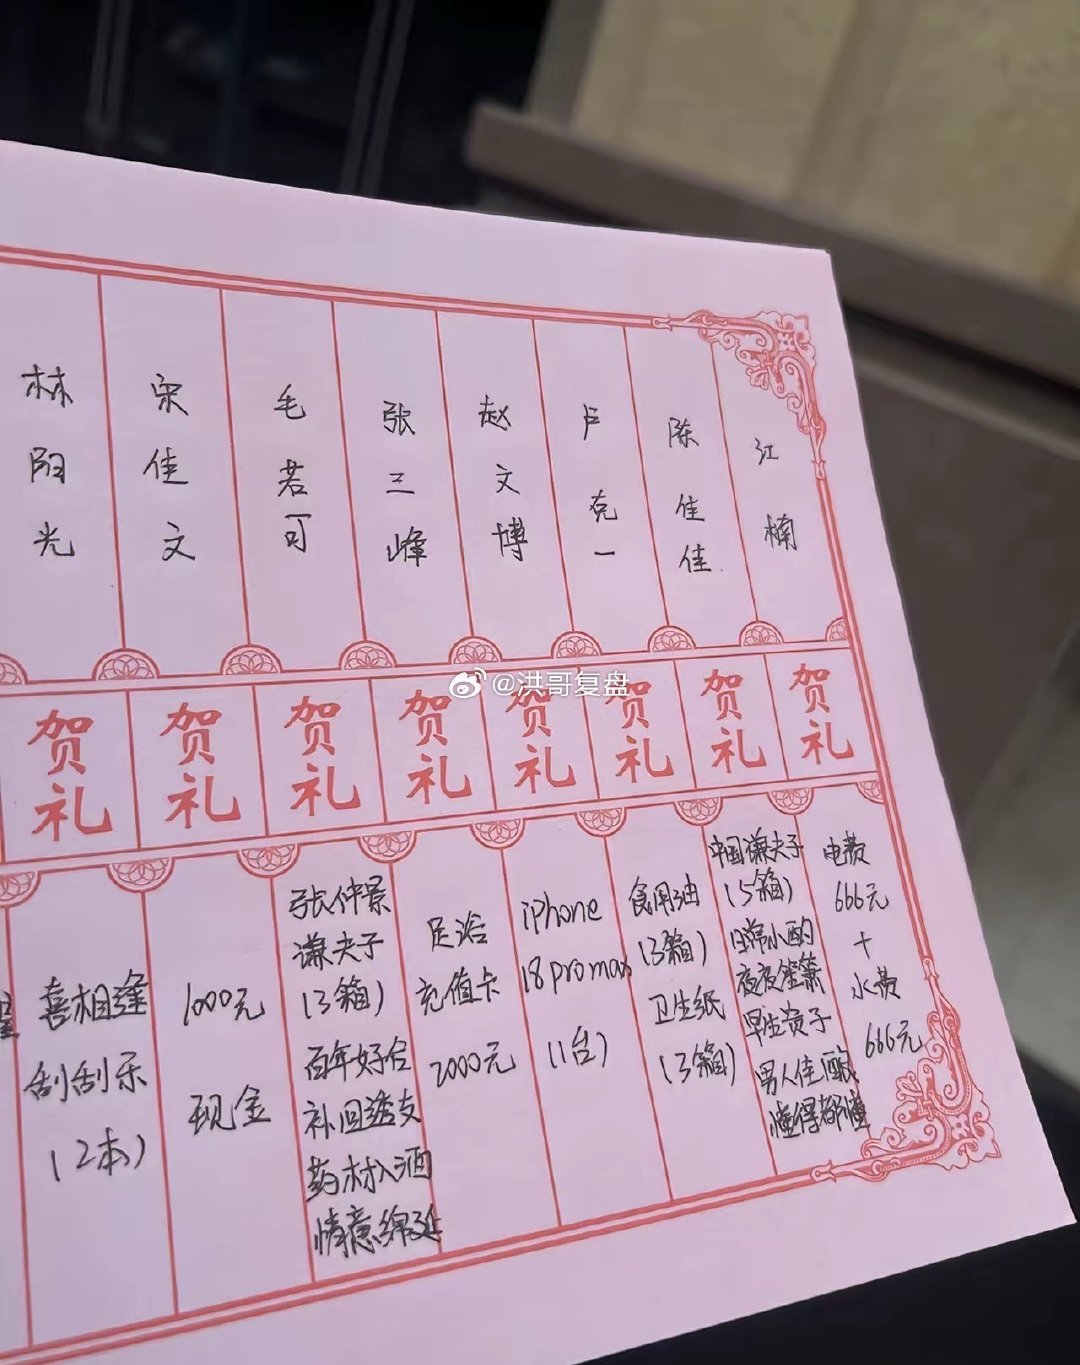 江楠
贺礼
电费
666元
+
水费
666元
陈佳佳
贺礼
中国谦夫子
(5箱)
日常小酌
夜夜笙箫
早生贵子
男人佳酿
懂得都懂
卢克一
贺礼
食用油
(3箱)
卫生纸
(3箱)
赵文博
贺礼
iphone
18promax
(1台)
张三峰
贺礼
足浴
充值卡
2000元
毛若可
贺礼
张仲景
谦夫子
(3箱)
百年好合
补回透支
药材入酒
情意绵延
宋佳文
贺礼
1000元
现金
林阳光
贺礼
喜相逢
刮刮乐
(2本)
@洪哥复盘